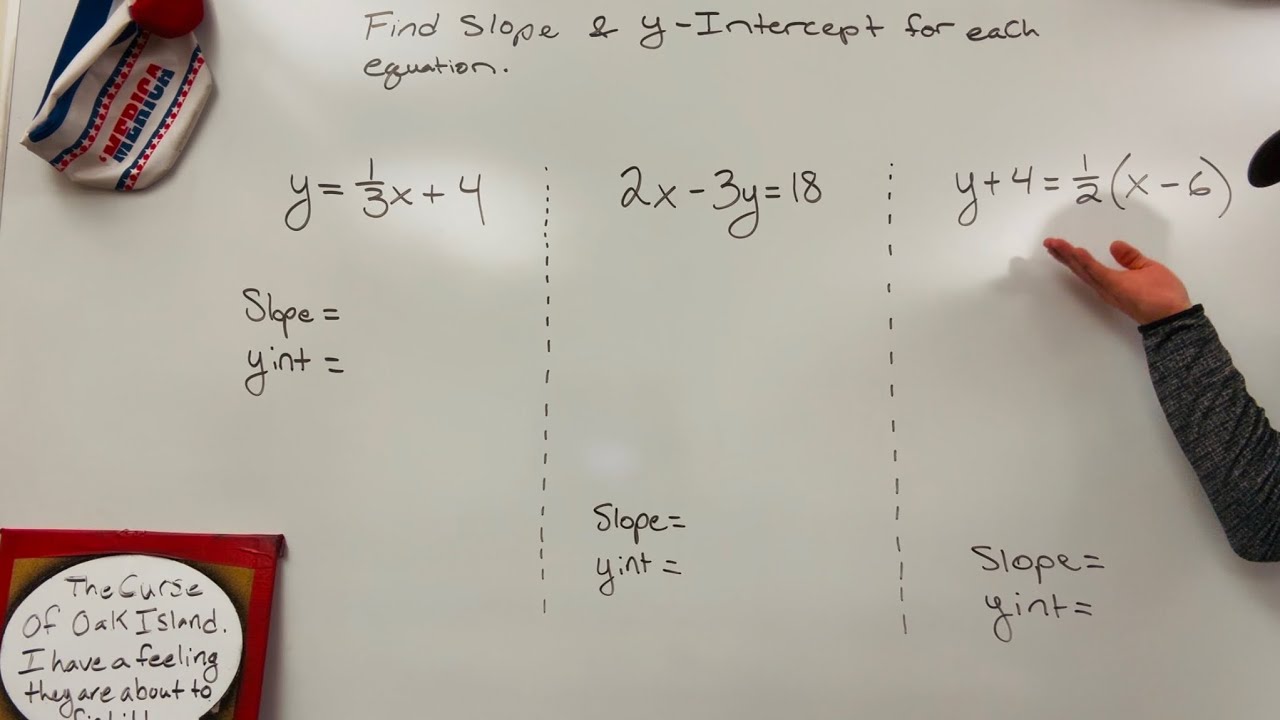 Find Slope & y-Intercept for each
equation.
'MERICA
'MERICA
y = 1/3 x + 4
Slope =
y int =
2x - 3y = 18
Slope =
y int =
y + 4 = 1/2 (x - 6)
Slope =
y int =
The Curse
Of Oak Island.
I have a feeling
they are about to